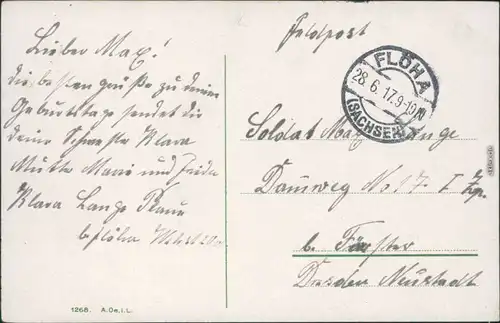 Lieber Max!
die besten Grüße zu deinem
Geburtstage sendet dir
deine Schwester Klara
Mutter Marie und Frida
Klara Lange Plaue
b. Flöha
1268. A.De.i.L.
Feldpost
FLÖHA
28.6.17.9-10V
(SACHSEN)
Soldat Max Lange
Dammweg No 17. I
b. Förster
Dresden Neustadt